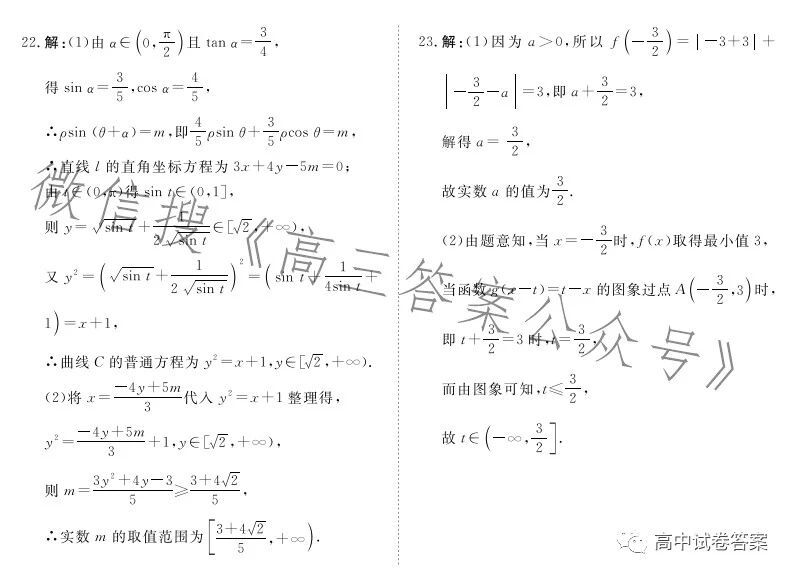 22.解:(1)由 α∈(0,π/2)且 tan α=3/4,
得 sin α=3/5,cos α=4/5,
∴ρsin (θ+α)=m,即4/5ρsin θ+3/5ρcos θ=m,
∴直线 l 的直角坐标方程为 3x+4y-5m=0;
由 t∈(0,π)得 sin t∈(0,1],
则 y=√sin t+1/(2√sin t)∈[√2,+∞),
又 y²=(√sin t+1/(2√sin t))²=(sin t+1/(4sin t)+
1)=x+1,
∴曲线 C 的普通方程为 y²=x+1,y∈[√2,+∞).
(2)将 x=(-4y+5m)/3代入 y²=x+1 整理得,
y²=(-4y+5m)/3+1,y∈[√2,+∞),
则 m=(3y²+4y-3)/5≥(3+4√2)/5,
∴实数 m 的取值范围为[(3+4√2)/5,+∞).
23.解:(1)因为 a>0,所以 f(-3/2)=|-3+3|+
|-3/2-a|=3,即 a+3/2=3,
解得 a=3/2,
故实数 a 的值为3/2.
(2)由题意知,当 x=-3/2时,f(x)取得最小值 3,
当函数 g(x-t)=t-x 的图象过点 A(-3/2,3)时,
即 t+3/2=3 时,t=3/2,
而由图象可知,t≤3/2,
故 t∈(-∞,3/2].
微信搜《高三答案公众号》
高中试卷答案